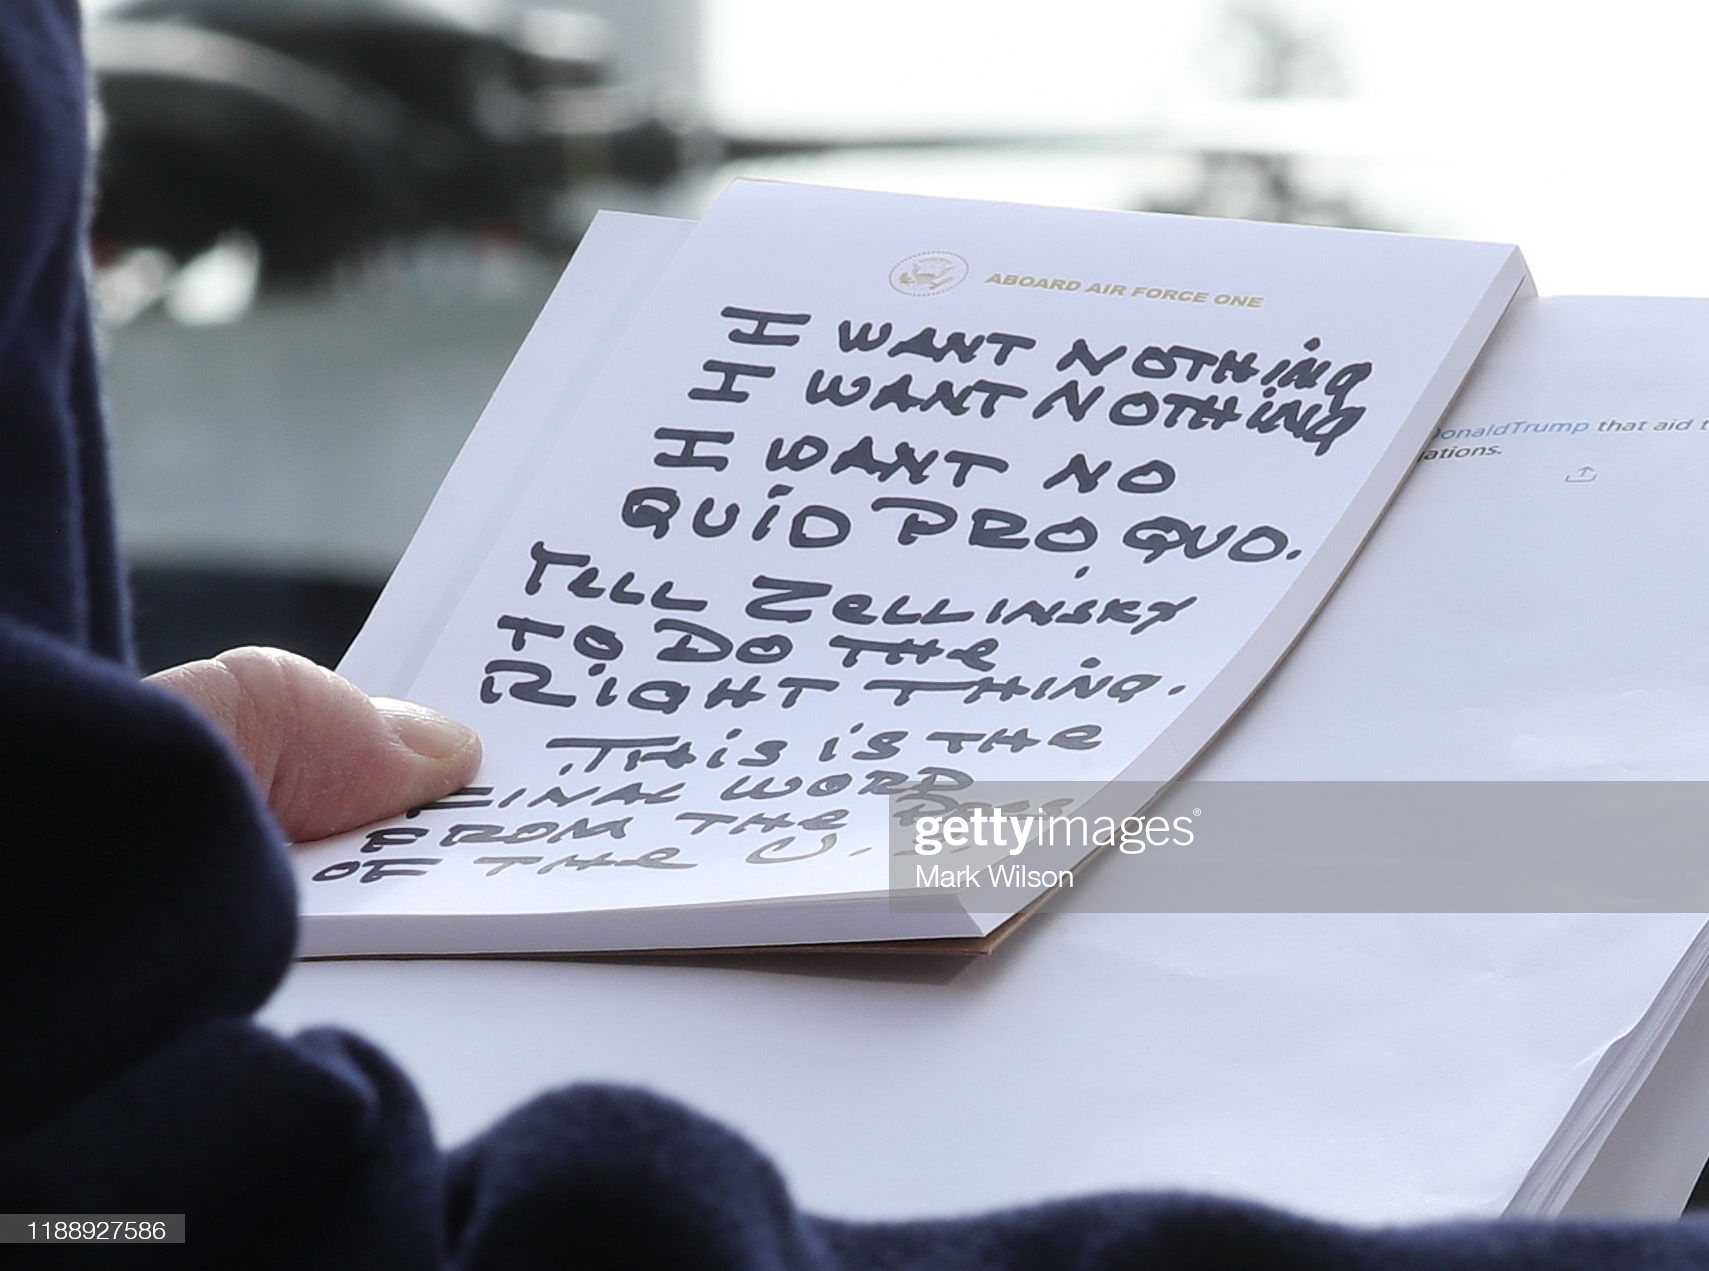 ABOARD AIR FORCE ONE
I WANT NOTHING
I WANT NOTHING
I WANT NO
QUID PRO QUO.
TELL ZELLINSKY
TO DO THE
RIGHT THING.
THIS IS THE
FINAL WORD
FROM THE PRES
OF THE U.S.
DonaldTrump that aid t
ations.
gettyimages®
Mark Wilson
1188927586